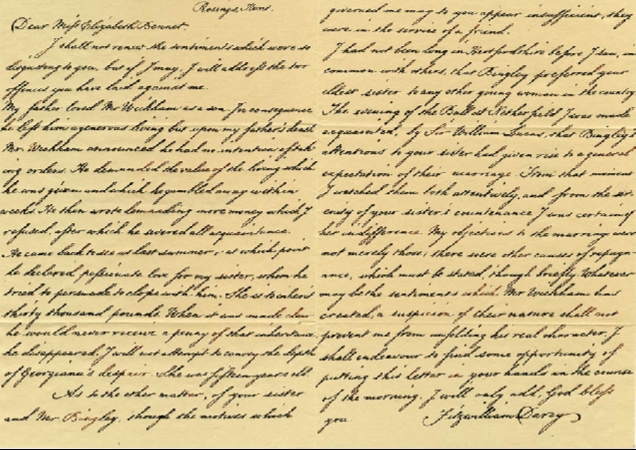 Rosings, Kent.
Dear Miss Elizabeth Bennet.
I shall not renew the sentiments which were so
disgusting to you, but if I may, I will address the two
offences you have laid against me.
My father loved Mr Wickham as a son. In consequence
he left him a generous living but upon my father's death
Mr. Wickham announced he had no intention of tak-
ing orders. He demanded the value of the living which
he was given and which he gambled away within
weeks. He then wrote demanding more money which I
refused, after which he severed all acquaintance.
He came back to see us last summer, at which point
he declared passionate love for my sister, whom he
tried to persuade to elope with him. She is to inherit
thirty thousand pounds. When it was made clear
he would never receive a penny of that inheritance
he disappeared. I will not attempt to convey the depth
of Georgiana's despair. She was fifteen years old.
As to the other matter, of your sister
and Mr Bingley, though the motives which
governed me may to you appear insufficient, they
were in the service of a friend.
I had not been long in Hertfordshire before I saw, in
common with others, that Bingley preferred your
eldest sister to any other young woman in the country.
The evening of the Ball at Netherfield I was made
acquainted, by Sir William Lucas, that Bingley's
attentions to your sister had given rise to a general
expectation of their marriage. From that moment
I watched them both attentively, and from the
of your sister's countenance I was certain of
her indifference. My objections to the marriage were
not merely those; there were other causes of repugn-
ance, which must be stated, though briefly. Whatever
may be the sentiments which Mr Wickham has
created, a suspicion of their nature shall not
prevent me from unfolding his real character. I
shall endeavour to find some opportunity of
putting this letter in your hands in the course
of the morning. I will only add, God bless
you
Fitzwilliam Darcy